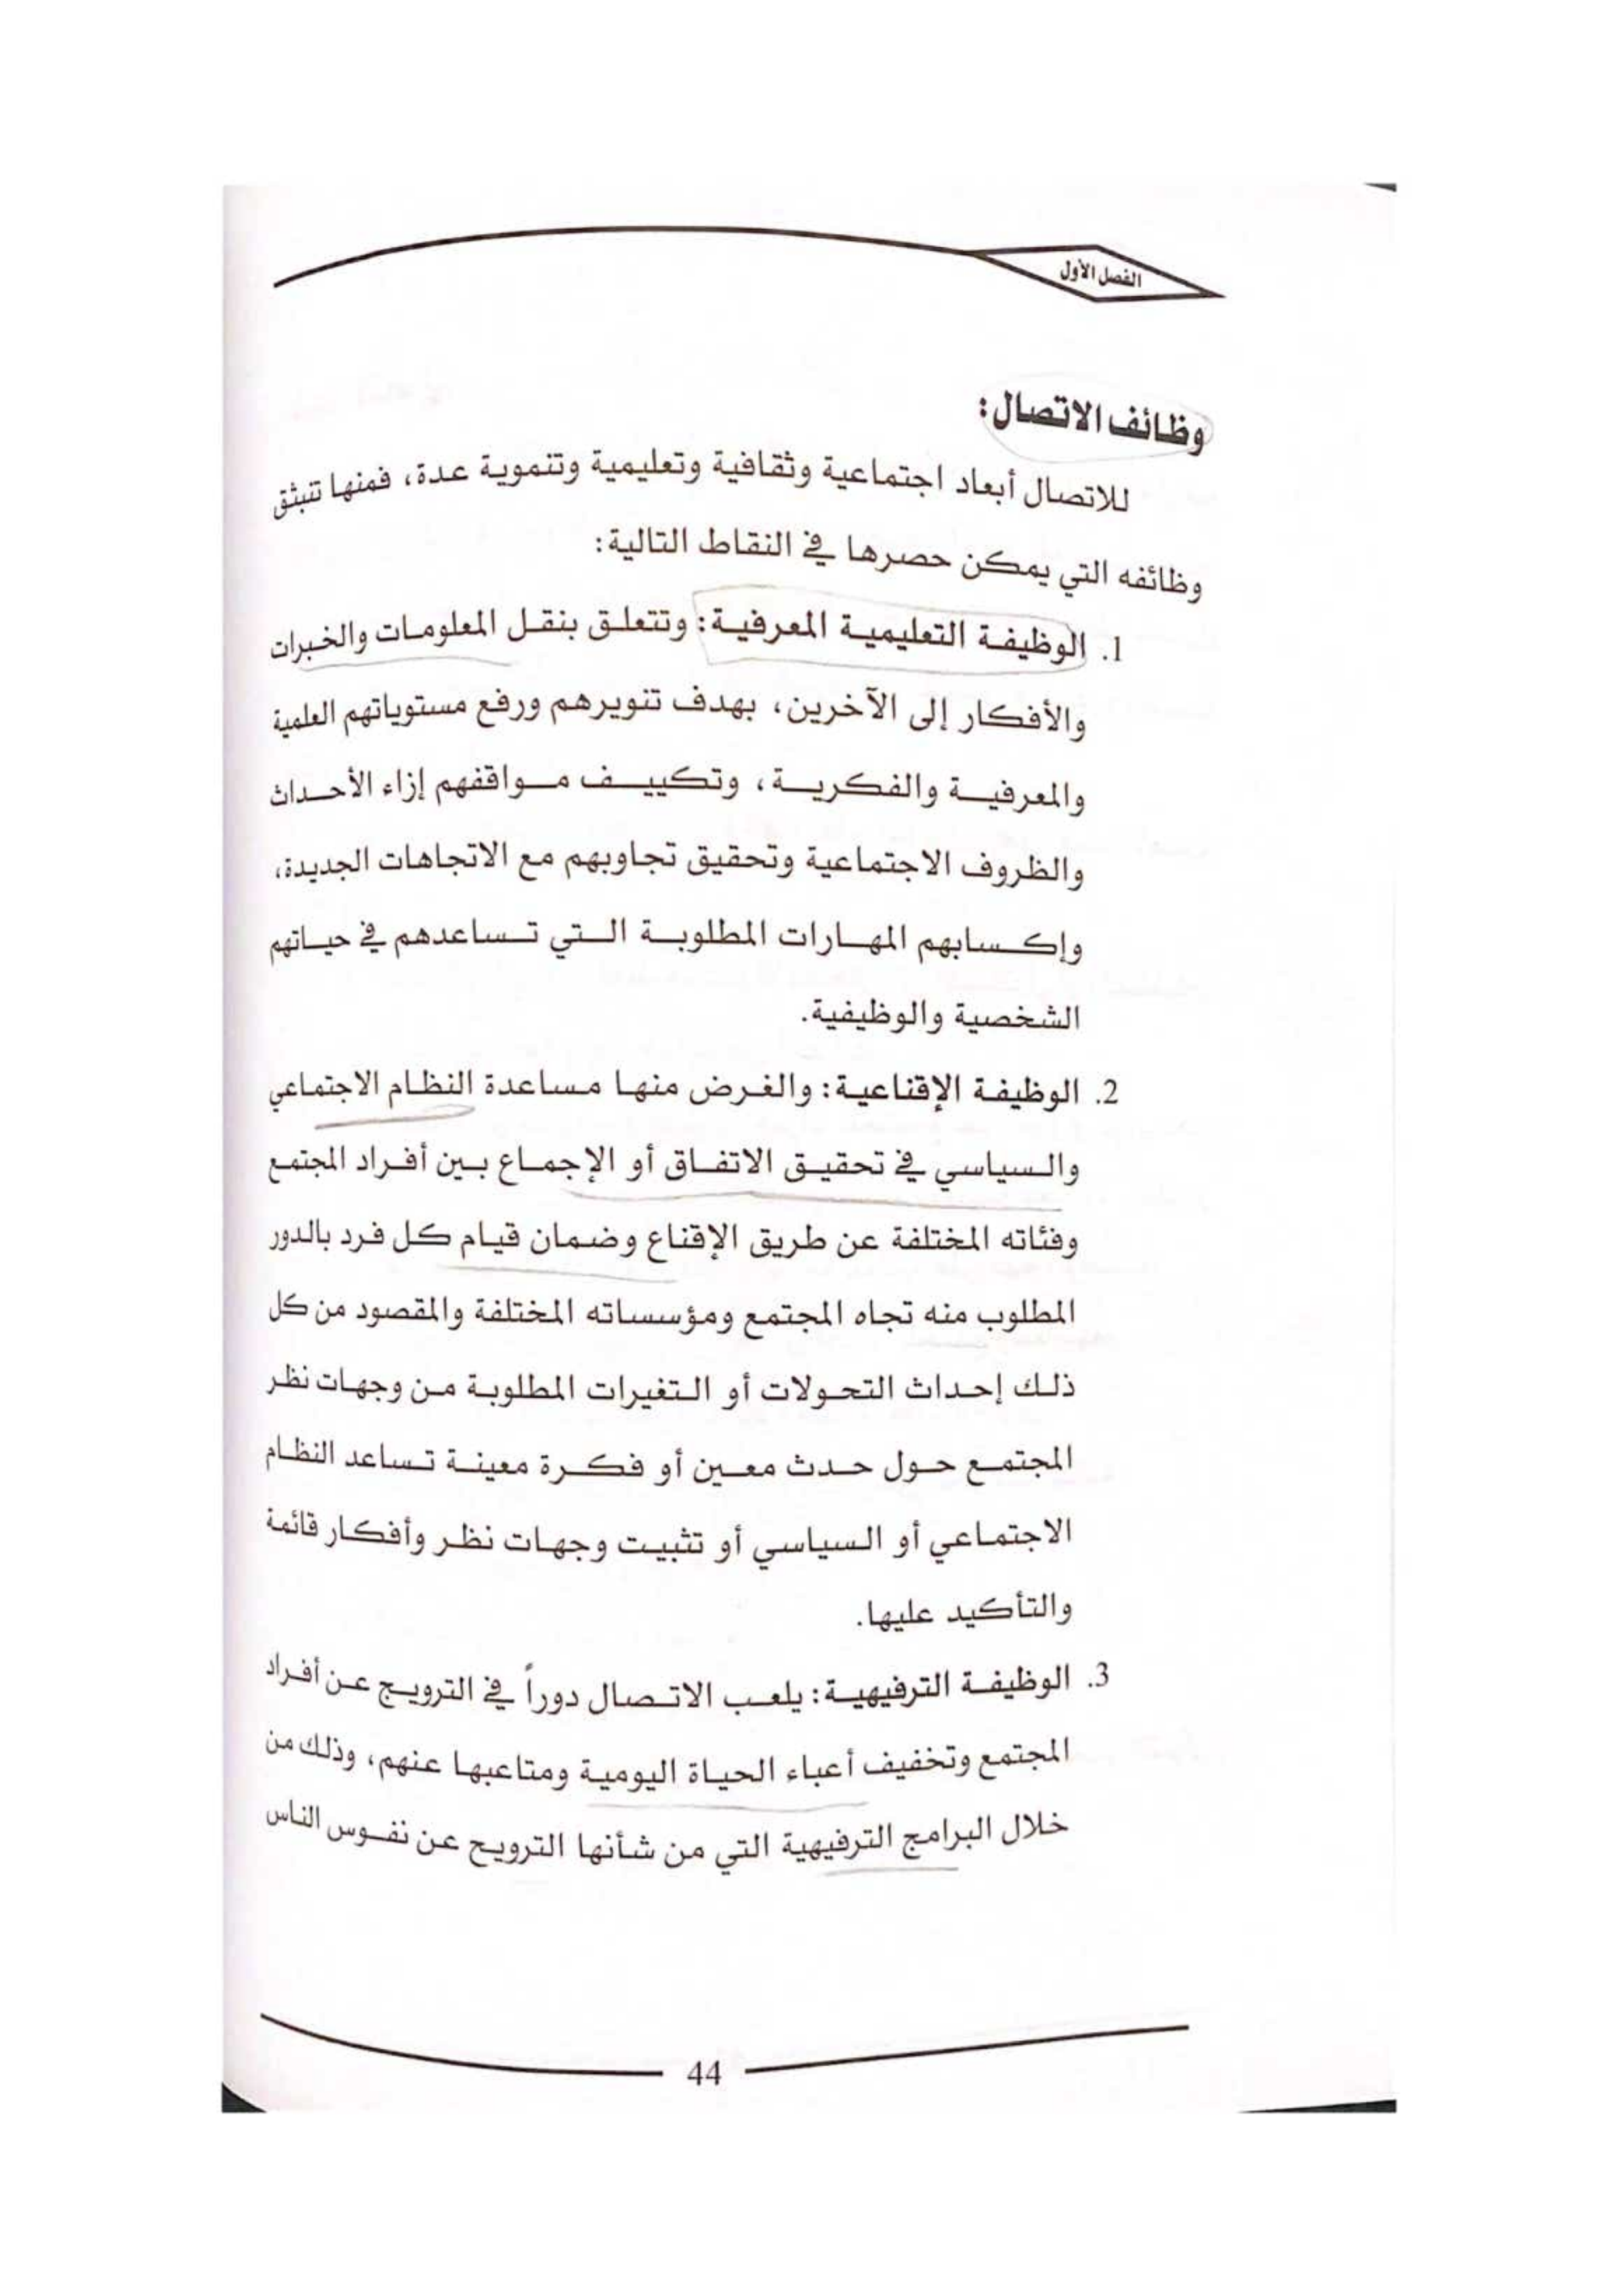 الفصل الأول
وظائف الاتصال:
للاتصال أبعاد اجتماعية وثقافية وتعليمية وتنموية عدة، فمنها تنبثق
وظائفه التي يمكن حصرها في النقاط التالية:
1. الوظيفة التعليمية المعرفية: وتتعلق بنقل المعلومات والخبرات
والأفكار إلى الآخرين، بهدف تنويرهم ورفع مستوياتهم العلمية
والمعرفية والفكرية، وتكييف مواقفهم إزاء الأحداث
والظروف الاجتماعية وتحقيق تجاوبهم مع الاتجاهات الجديدة،
وإكسابهم المهارات المطلوبة التي تساعدهم في حياتهم
الشخصية والوظيفية.
2. الوظيفة الإقناعية: والغرض منها مساعدة النظام الاجتماعي
والسياسي في تحقيق الاتفاق أو الإجماع بين أفراد المجتمع
وفئاته المختلفة عن طريق الإقناع وضمان قيام كل فرد بالدور
المطلوب منه تجاه المجتمع ومؤسساته المختلفة والمقصود من كل
ذلك إحداث التحولات أو التغيرات المطلوبة من وجهات نظر
المجتمع حول حدث معين أو فكرة معينة تساعد النظام
الاجتماعي أو السياسي أو تثبيت وجهات نظر وأفكار قائمة
والتأكيد عليها.
3. الوظيفة الترفيهية: يلعب الاتصال دوراً في الترويج عن أفراد
المجتمع وتخفيف أعباء الحياة اليومية ومتاعبها عنهم، وذلك من
خلال البرامج الترفيهية التي من شأنها الترويح عن نفوس الناس
44